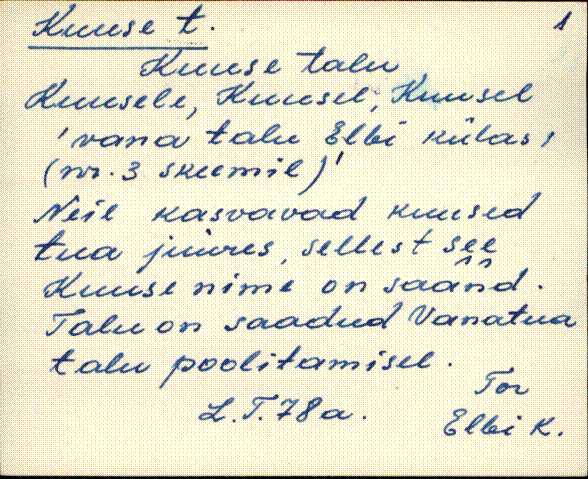 Kuuse t.
1
Kuuse talu
Kuusele, Kuusel, Kuusel
'vana talu Elbi külas,
(nr. 3 skeemil)'
Neil kasvavad kuused
tua juures, sellest see
Kuuse nime on saand.
Talu on saadud Vanatua
talu poolitamisel.
L.T. 78 a.
Tor
Elbi k.